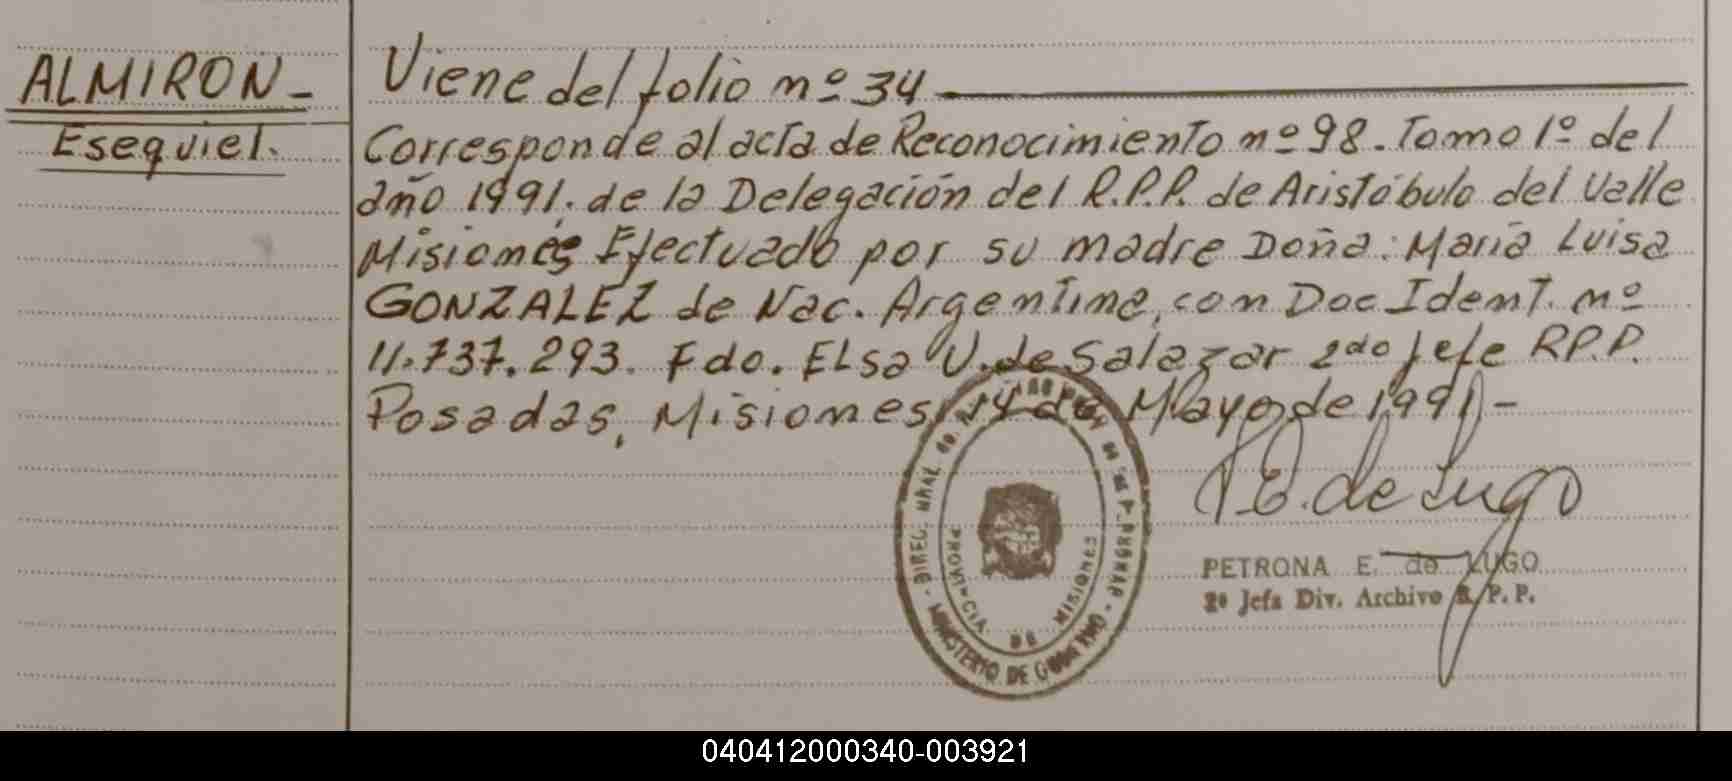 ALMIRON-
Esequiel.
Viene del folio nº 34
Corresponde al acta de Reconocimiento nº 98. Tomo 1º del
año 1991. de la Delegación del R.P.P. de Aristóbulo del Valle
Misiones Efectuado por su madre Doña: María Luisa
GONZALEZ de Nac. Argentina, con Doc Ident. nº
11.737.293. Fdo. Elsa V. de Salazar 2do Jefe R.P.P.
Posadas, Misiones, 14 de Mayo de 1991.-
P.E. de Lugo
PETRONA E. de LUGO
2º Jefa Div. Archivo R.P.P.
DIREC. GRAL. de
MINISTERIO DE GOBIERNO
PROVINCIA DE MISIONES
040412000340-003921